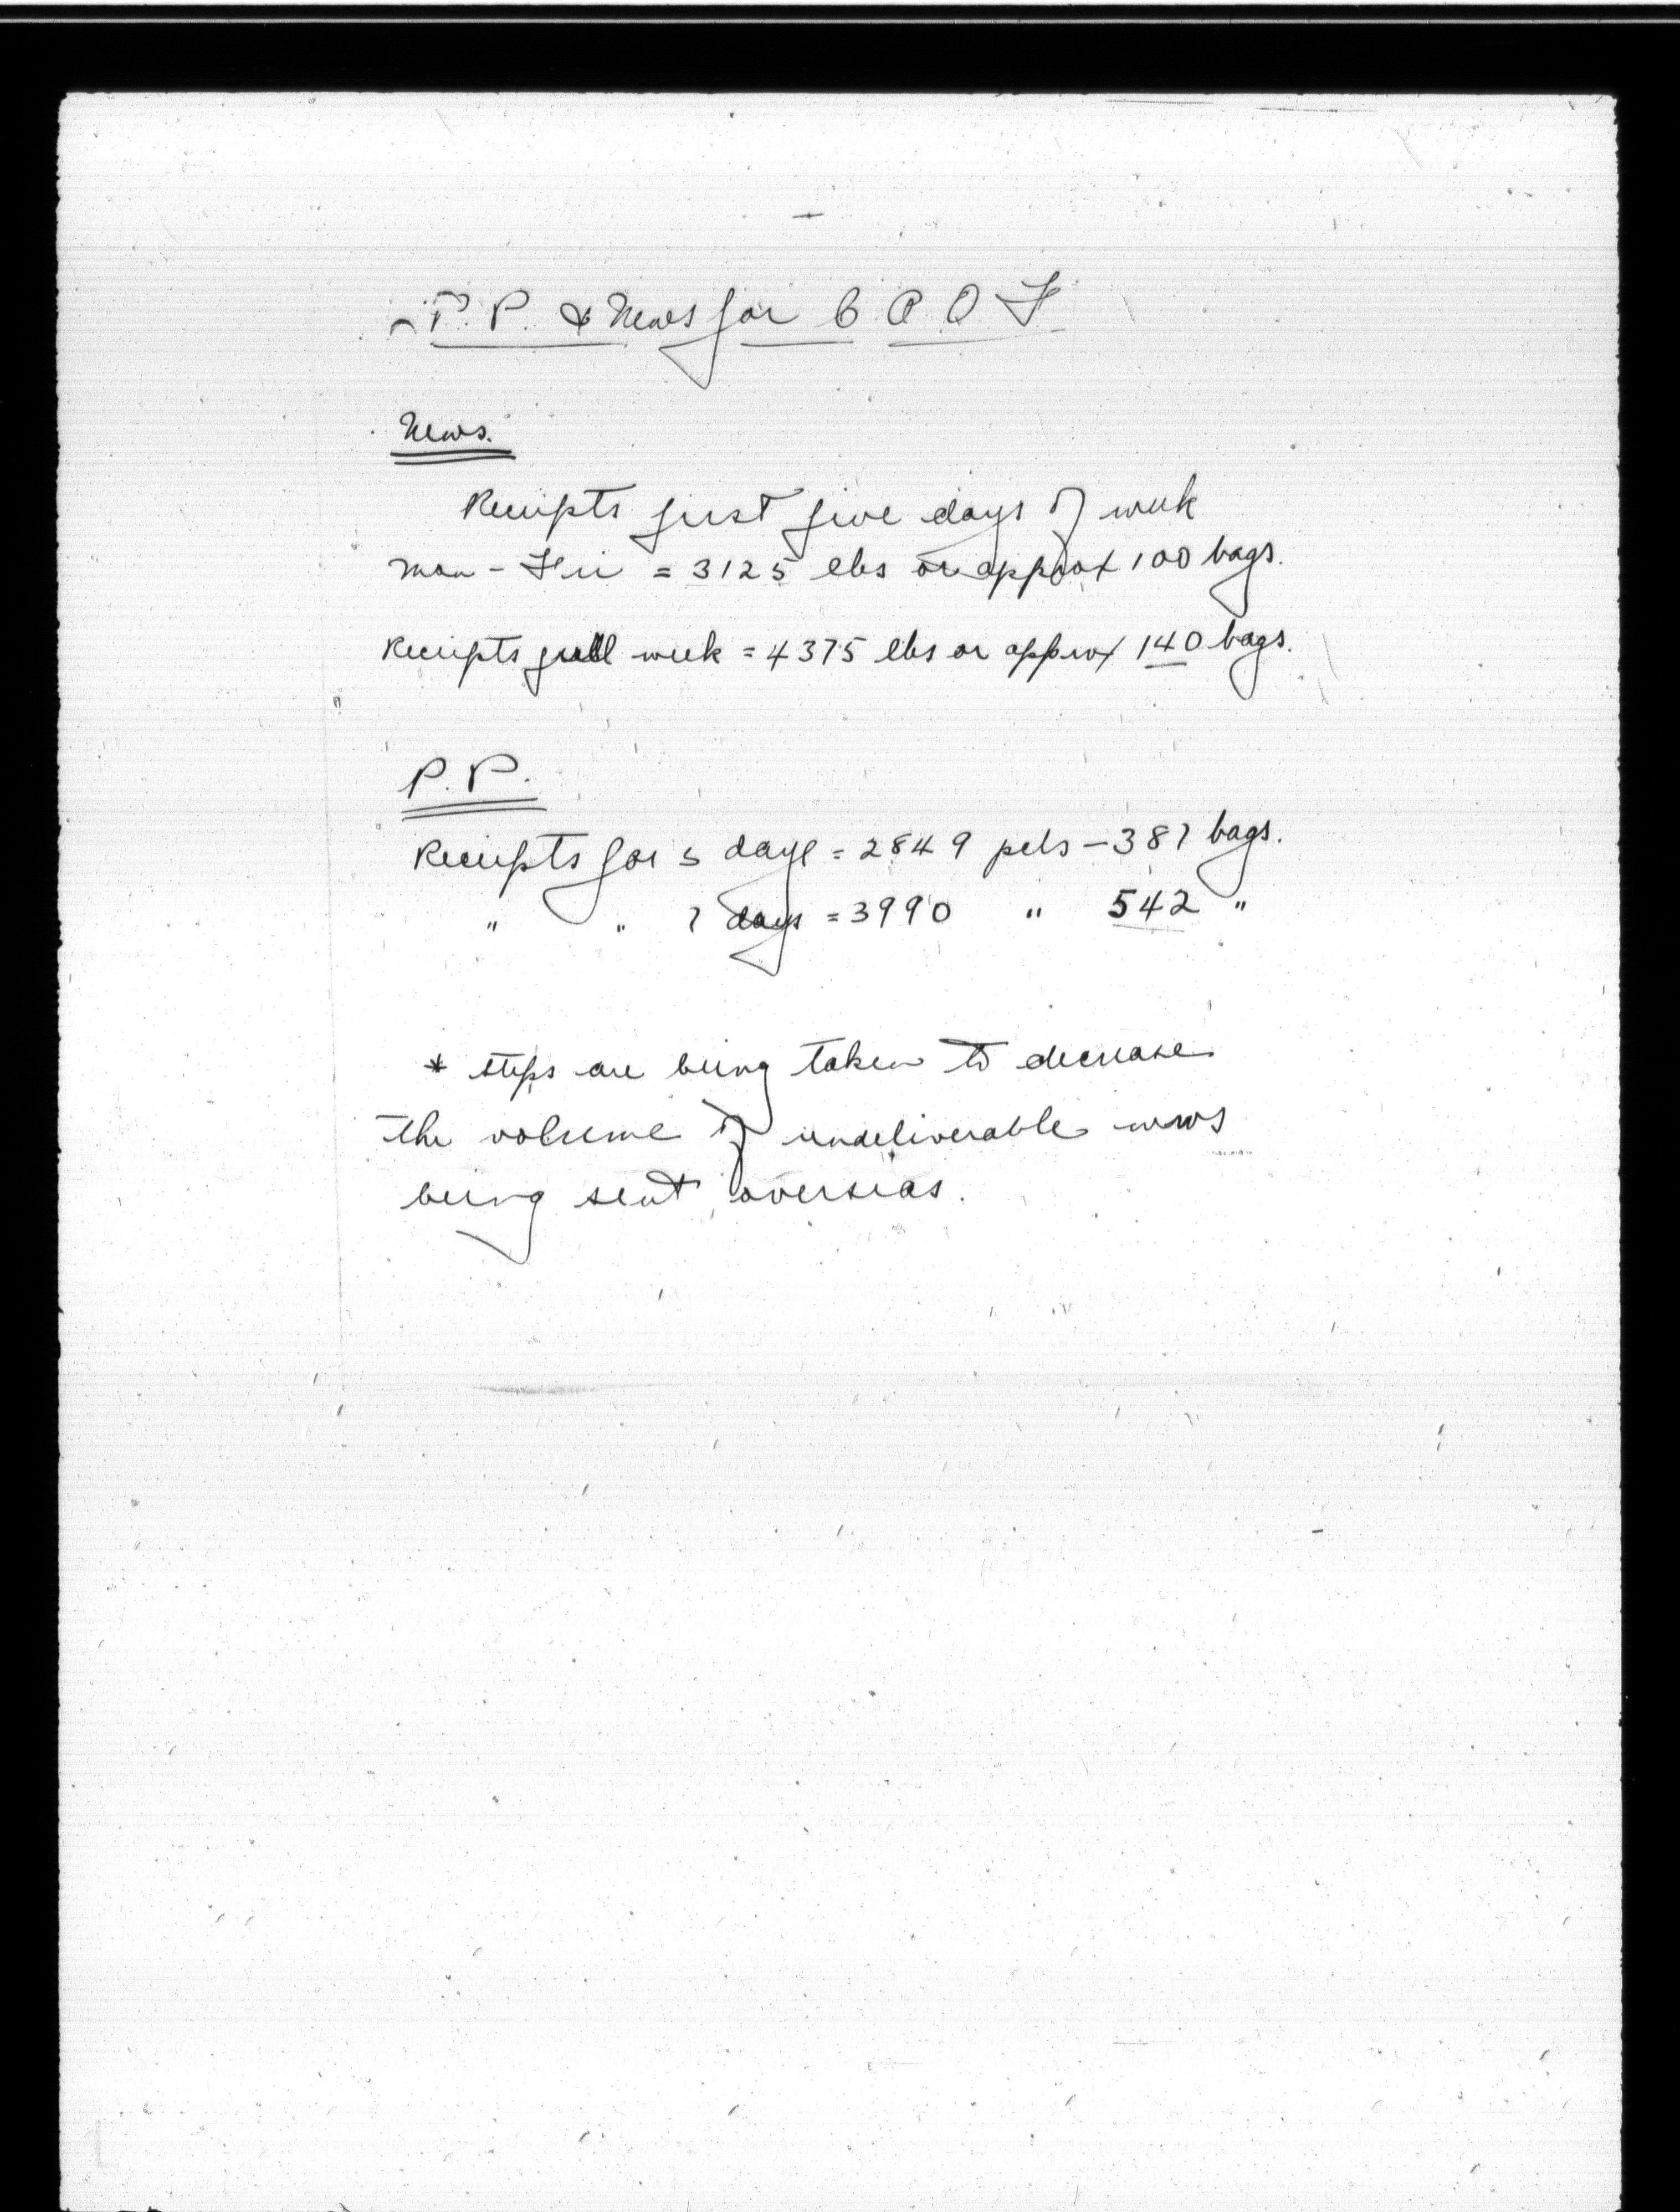 P.P. & News for C A O F
News.
Receipts first five days of week
Mon - Fri = 3125 lbs or approx 100 bags.
Receipts full week = 4375 lbs or approx 140 bags.
P.P.
Receipts for 5 days = 2849 pcls - 387 bags.
" " 7 days = 3990 " 542 "
* Steps are being taken to decrease
the volume of undeliverable news
being sent overseas.